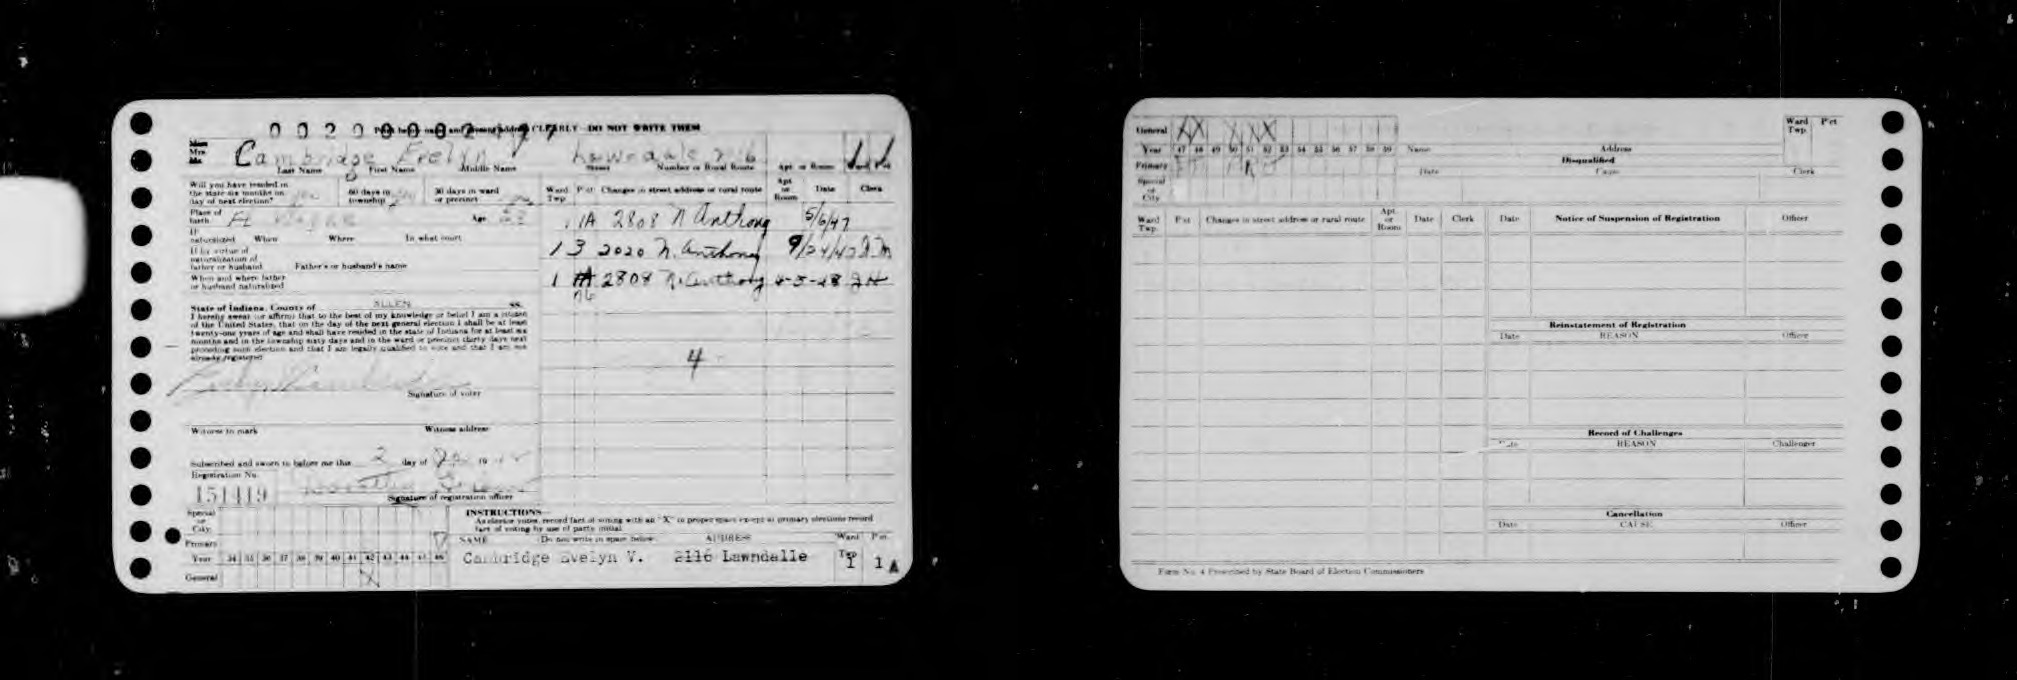 Print below name and present address CLEARLY—DO NOT WRITE THEM
Mrs.
Cambridge Evelyn V Lawndale 2116
Last Name First Name Middle Name Street Number or Rural Route Apt. or Room Ward Pct.
Will you have resided in the state six months on day of next election? yes 60 days in township yes 30 days in ward or precinct yes
Place of birth Ft Wayne Age
If naturalized When Where In what court
If by virtue of naturalization of father or husband Father's or husband's name
When and where father or husband naturalized
State of Indiana, County of ALLEN ss.
I hereby swear (or affirm) that to the best of my knowledge or belief I am a citizen
of the United States, that on the day of the next general election I shall be at least
twenty-one years of age and shall have resided in the state of Indiana for at least six
months and in the township sixty days and in the ward or precinct thirty days next
preceding such election and that I am legally qualified to vote and that I am not
already registered
Signature of voter
Witness to mark Witness address
Subscribed and sworn to before me this 2 day of 19
Registration No.
151419
Signature of registration officer
Special or City
Primary
Year 34 35 36 37 38 39 40 41 42 43 44 45 46
General X
Ward Twp. Pct. Changes in street address or rural route Apt. or Room Date Clerk
1 1A 2808 N Anthony 5/6/47
1 3 2020 N. Anthony
1 1A 2808 N. Anthony 4-5-48 JH
4
INSTRUCTIONS—
As elector votes, record fact of voting with an "X" in proper space except at primary elections record
fact of voting by use of party initial.
NAME Do not write in space below. ADDRESS Ward Twp. Pct.
Cambridge Evelyn V. 2116 Lawndalle 1 1A
General X X X X X
Year 47 48 49 50 51 52 53 54 55 56 57 58 59
Primary
Special or City
Name Address Ward Twp. Pct.
Disqualified
Date Cause Clerk
Ward Twp. Pct. Changes in street address or rural route Apt. or Room Date Clerk
Date Notice of Suspension of Registration Officer
Reinstatement of Registration
Date REASON Officer
Record of Challenges
Date REASON Challenger
Cancellation
Date CAUSE Officer
Form No. 4 Prescribed by State Board of Election Commissioners